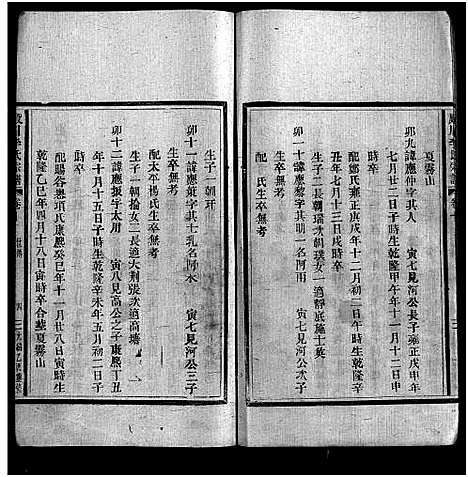 夏霧山
卯九諱應仲字 寅七見河公長子雍正戊申年
七月廿二日子時生乾隆甲午年十一月十二日申
時卒
配鄭氏雍正戊申年十二月初二日子時生乾隆
年七月十三日戌時卒
生子二朝瑞次朝璞女一適靜底施士莪
卯一十諱應黎字其明一名阿雨 寅七見河公次子
生卒無考
配 氏生卒無考
生子一朝玕
卯十一諱應葉字其士乳名阿水 寅七見河公三子
生卒無考
配太平楊氏生卒無考
生子一朝掄女二長適大荆張次適高墻
卯十二諱應振字太用 寅八見高公之子康熙丁丑
年十月十五日子時生乾隆辛未年五月初二日子
時卒
配賜谷懋項氏康熙癸巳年十一月廿八日寅時生
乾隆乙巳年四月十八日寅時卒合葬夏霧山